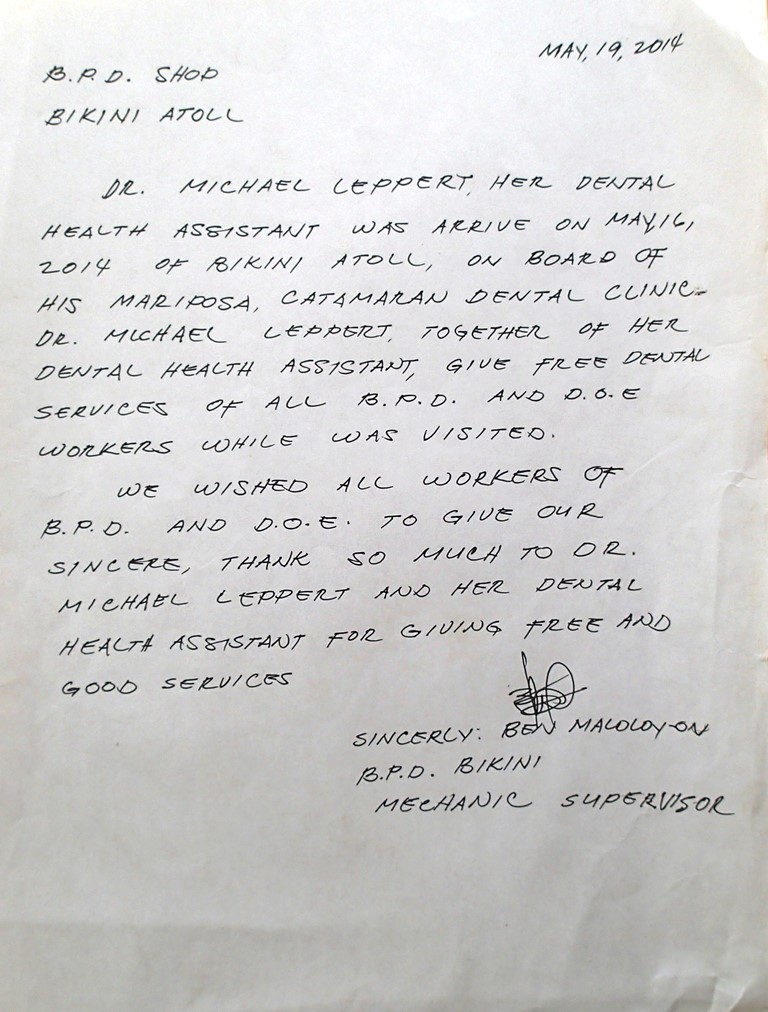 MAY, 19, 2014
B.P.D. SHOP
BIKINI ATOLL
DR. MICHAEL LEPPERT, HER DENTAL
HEALTH ASSISTANT WAS ARRIVE ON MAY, 16,
2014 OF BIKINI ATOLL, ON BOARD OF
HIS MARIPOSA, CATAMARAN DENTAL CLINIC.
DR. MICHAEL LEPPERT, TOGETHER OF HER
DENTAL HEALTH ASSISTANT, GIVE FREE DENTAL
SERVICES OF ALL B.P.D. AND D.O.E
WORKERS WHILE WAS VISITED.
WE WISHED ALL WORKERS OF
B.P.D. AND D.O.E. TO GIVE OUR
SINCERE, THANK SO MUCH TO DR.
MICHAEL LEPPERT AND HER DENTAL
HEALTH ASSISTANT FOR GIVING FREE AND
GOOD SERVICES
SINCERLY: BEN MALOLOY-ON
B.P.D. BIKINI
MECHANIC SUPERVISOR